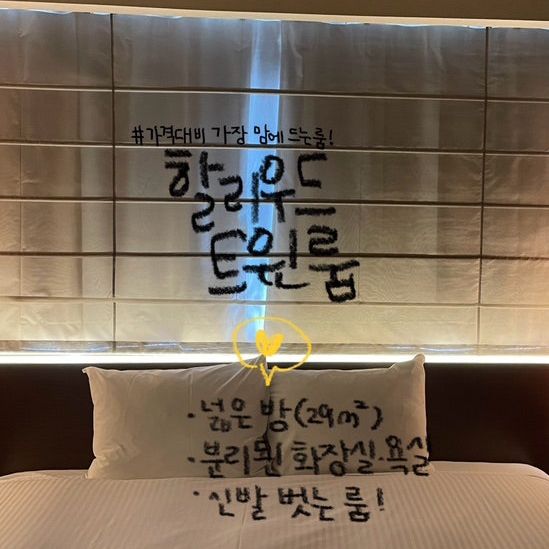 #가격대비 가장 맘에 드는룸!
할리우드
트윈룸
· 넓은 방(29m²)
· 분리된 화장실.욕실
· 신발 벗는 룸!